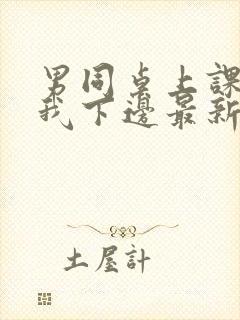 男同桌上課
我下邊最新
土屋計